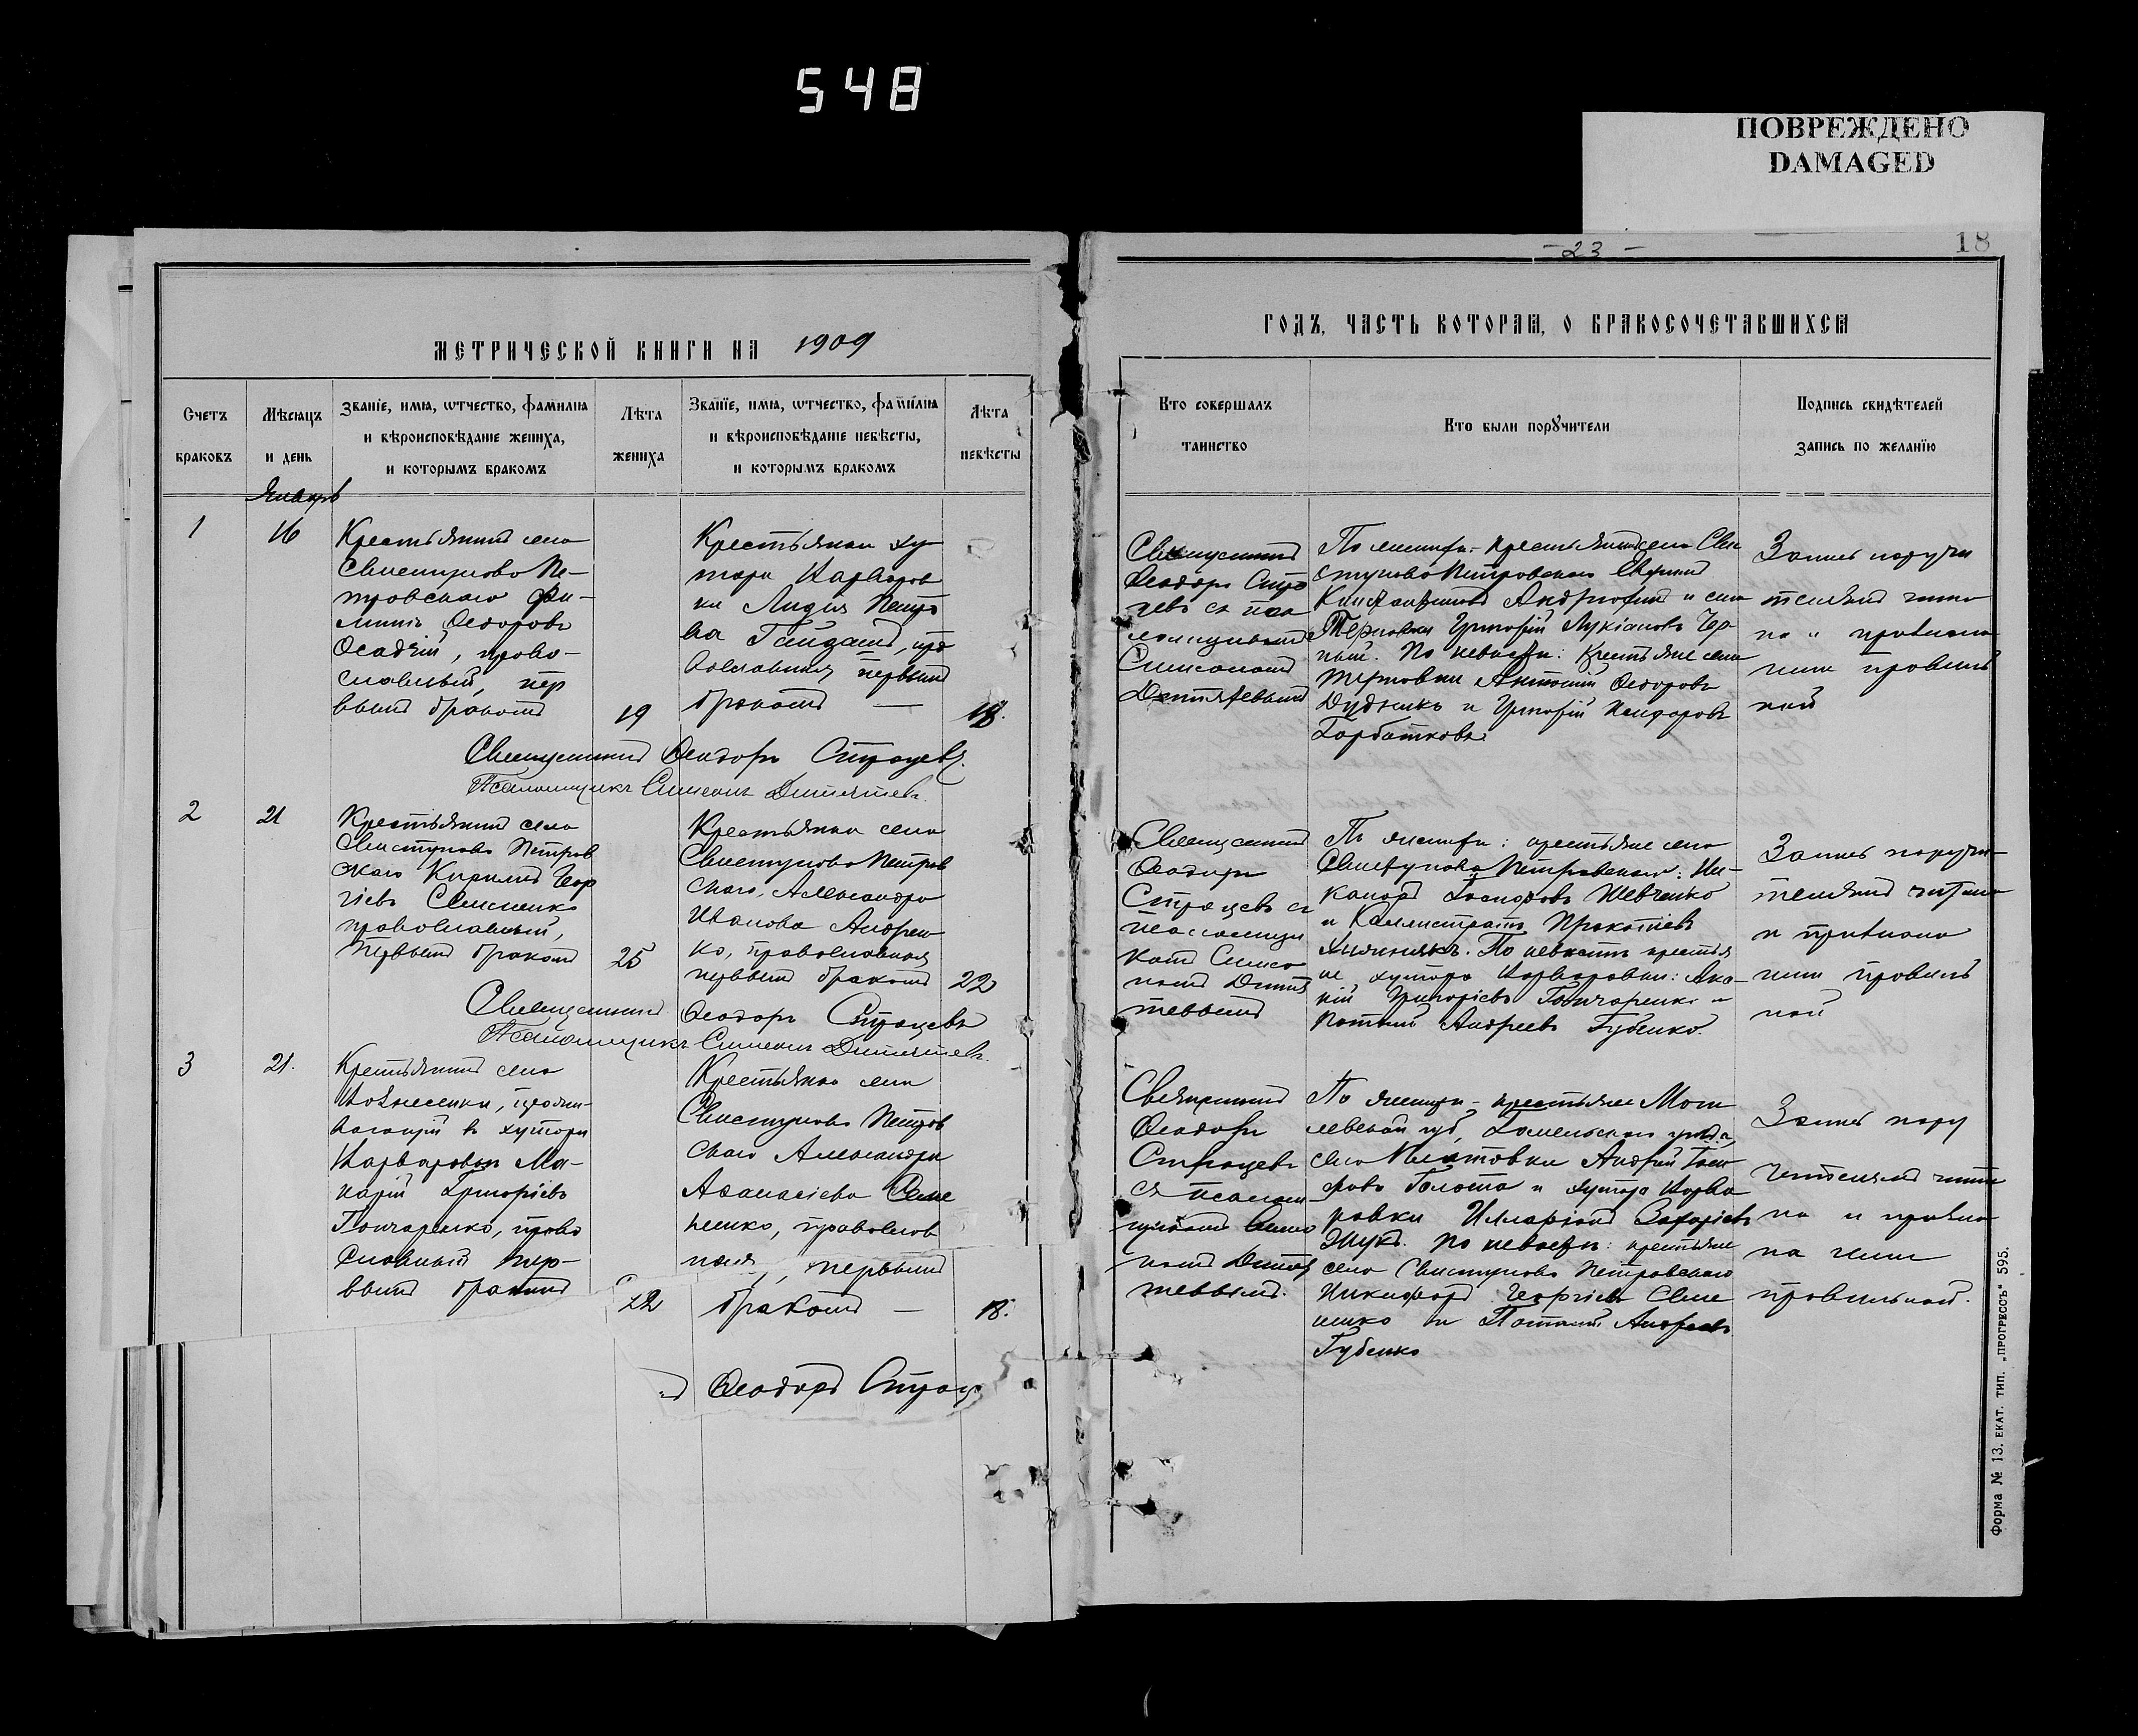 548
ПОВРЕЖДЕНО
DAMAGED
- 23 -
18
МЕТРИЧЕСКОЙ КНИГИ НА 1909
ГОДЪ, ЧАСТЬ ВТОРАЯ, О БРАКОСОЧЕТАВШИХСЯ
Счетъ браковъ
Мѣсяцъ и день
Званіе, имя, отчество, фамилія и вѣроисповѣданіе жениха, и которымъ бракомъ
Лѣта жениха
Званіе, имя, отчество, фамилія и вѣроисповѣданіе невѣсты, и которымъ бракомъ
Лѣта невѣсты
Кто совершалъ таинство
Кто были поручители
Подпись свидѣтелей запись по желанію
Январь
1
16
Крестьянинъ села
Свистуново Пе-
тровскаго
Ѳеодоровъ
Осадчій, право-
славный, пер
вымъ бракомъ
19
Крестьянка ху-
тора Варваров
ки Лидія Петро
ва Гайдашъ, пра
вославная, первымъ
бракомъ —
18.
Священникъ
Ѳеодоръ Стра
цевъ съ пса
ломщикомъ
Симеономъ
По женихѣ - крестьянинъ села Сви
стуново Петровскаго
и села
Терновки Григорій Лукіановъ Чер
ный. По невѣстѣ: крестьяне села
Терновки Антоній Ѳеодоровъ
Дудникъ и Григорій
Горбатковъ
Запись поручи
телямъ чита
на и признана
ими правиль
ной
Священникъ Ѳеодоръ Страцевъ.
Псаломщикъ Симеонъ
2
21
Крестьянинъ села
Свистуново Петров
скаго Кириллъ Геор
гіевъ Семененко
православный,
первымъ бракомъ
25
Крестьянка села
Свистуново Петров
скаго, Александра
Иванова Андреен
ко, православная
первымъ бракомъ
22
Священникъ
Ѳеодоръ
Страцевъ съ
псаломщи
комъ Симео
номъ
По женихѣ: крестьяне села
Свистуново Петровскаго: Ни-
каноръ Шевченко
и Каллистратъ Прокопіевъ
По невѣстѣ крестья
не хутора Варваровки: Ака-
кій Григоріевъ Гончаренко и
Потапій Андреевъ Губенко.
Запись поручи-
телямъ читана
и признана
ими правиль
ной
Священникъ Ѳеодоръ Страцевъ
Псаломщикъ Симеонъ
3
21.
Крестьянинъ села
Вознесенки, прожи-
вающій въ хуторѣ
Варваровкѣ Ма-
карій Григоріевъ
Гончаренко, право
славный пер-
вымъ бракомъ
22
Крестьянка села
Свистуново Петров
скаго Александра
Аѳанасіева Семе
ненко, православ
ная, первымъ
бракомъ —
18.
Священникъ
Ѳеодоръ
Страцевъ
съ псалом
щикомъ Симео
номъ
По женихѣ - крестьяне Моги
левской губ, Гомельскаго уѣзда,
села Андрей
Голота и хутора Варва
ровки Илларіонъ Захаріевъ
Жукъ. По невѣстѣ: крестьяне
села Свистуново Петровскаго
Никифоръ Георгіевъ Семе
ненко и Потапій Андреевъ
Губенко
Запись пору
чителямъ чита
на и призна
на ими
правильной.
Ѳеодоръ Страц
Форма № 13. ЕКАТ. ТИП. „ПРОГРЕССЪ“ 595.